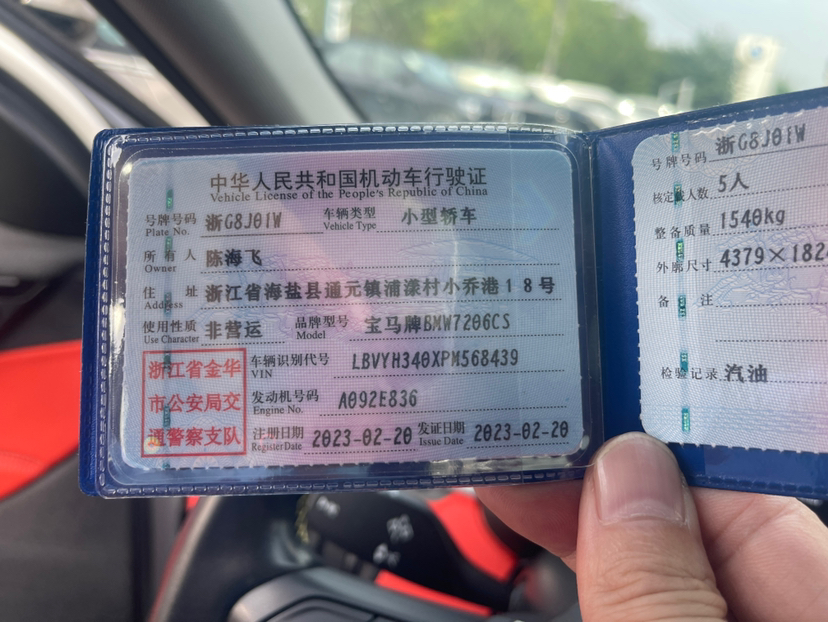 中华人民共和国机动车行驶证
Vehicle License of the People's Republic of China
号牌号码 浙G8J01W 车辆类型 小型轿车
Plate No. Vehicle Type
所有人 陈海飞
Owner
住址 浙江省海盐县通元镇浦漾村小乔港18号
Address
使用性质 非营运 品牌型号 宝马牌BMW7206CS
Use Character Model
浙江省金华
市公安局交
通警察支队
车辆识别代号 LBVYH340XPM568439
VIN
发动机号码 A092E836
Engine No.
注册日期 2023-02-20 发证日期 2023-02-20
Register Date Issue Date
号牌号码 浙G8J01W
核定载人数 5人
整备质量 1540kg
外廓尺寸 4379×182
备注
检验记录 汽油